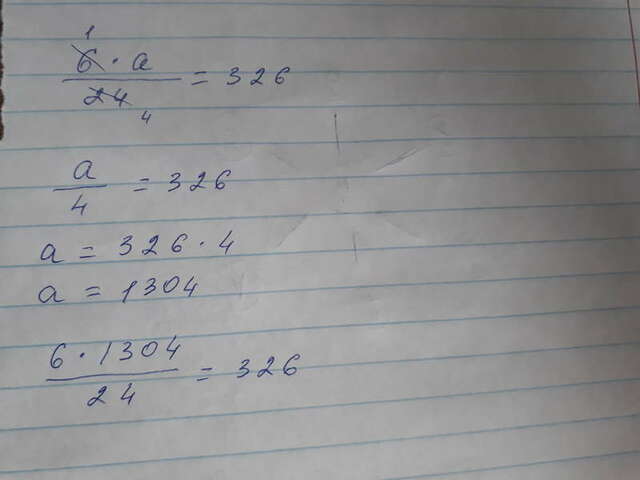 6 · a / 24 = 326
1
4
a / 4 = 326
a = 326 · 4
a = 1304
6 · 1304 / 24 = 326